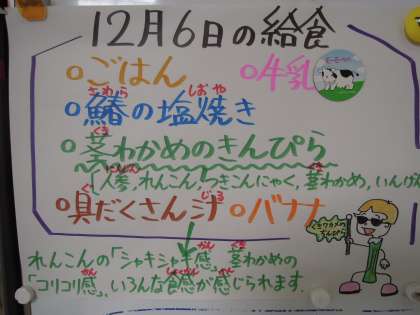 12月6日の給食
○ごはん ○牛乳
○鰆の塩焼き
○茎わかめのきんぴら
(人参,れんこん,つきこんにゃく,茎わかめ,いんげん
○具だくさん汁 ○バナナ
れんこんの「シャキシャキ感」、茎わかめの
「コリコリ感」、いろんな食感が感じられます.